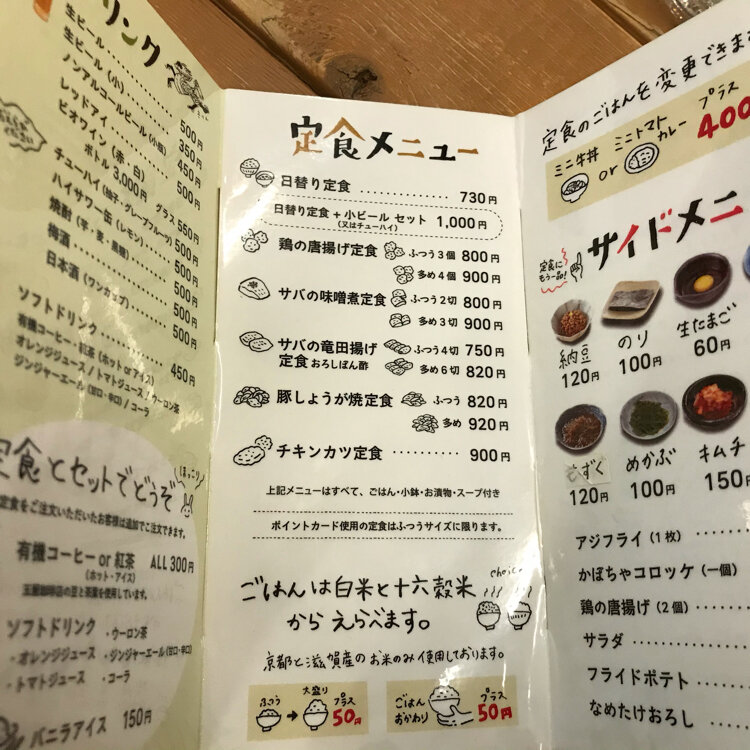 リンク
生ビール 500円
生ビール（小） 350円
ノンアルコールビール（小瓶） 450円
レッドアイ 500円
ビオワイン（赤・白）
ボトル 3,000円 グラス 550円
チューハイ（柚子・グレープフルーツ） 500円
ハイサワー缶（レモン） 500円
焼酎（芋・麦・黒糖） 500円
梅酒 500円
日本酒（ワンカップ） 500円
ソフトドリンク 450円
有機コーヒー・紅茶（ホット or アイス）
オレンジジュース / トマトジュース / ウーロン茶
ジンジャーエール（甘口・辛口）/ コーラ
定食とセットでどうぞ
ほっこり
定食をご注文いただいたお客様は追加でご注文できます。
有機コーヒー or 紅茶 ALL 300円
（ホット・アイス）
玉屋珈琲店の豆と茶葉を使用しています。
ソフトドリンク ・ウーロン茶
・オレンジジュース ・ジンジャーエール（甘口・辛口）
・トマトジュース ・コーラ
バニラアイス 150円
定食メニュー
日替り定食 730円
日替り定食 + 小ビール セット 1,000円
（又はチューハイ）
鶏の唐揚げ定食 ふつう3個 800円
多め4個 900円
サバの味噌煮定食 ふつう2切 800円
多め3切 900円
サバの竜田揚げ ふつう4切 750円
定食 おろしぽん酢 多め6切 820円
豚しょうが焼定食 ふつう 820円
多め 920円
チキンカツ定食 900円
上記メニューはすべて、ごはん・小鉢・お漬物・スープ付き
ポイントカード使用の定食はふつうサイズに限ります。
ごはんは白米と十六穀米 choice
からえらべます。
京都と滋賀産のお米のみ使用しております。
ふつう → 大盛り プラス 50円
ごはんおかわり プラス 50円
定食のごはんを変更できます
ミニ牛丼 or ミニトマトカレー プラス 400
サイドメニ
定食にもう一品!
納豆 120円
のり 100円
生たまご 60円
もずく 120円
めかぶ 100円
キムチ 150円
アジフライ（1枚）
かぼちゃコロッケ（一個）
鶏の唐揚げ（2個）
サラダ
フライドポテト
なめたけおろし